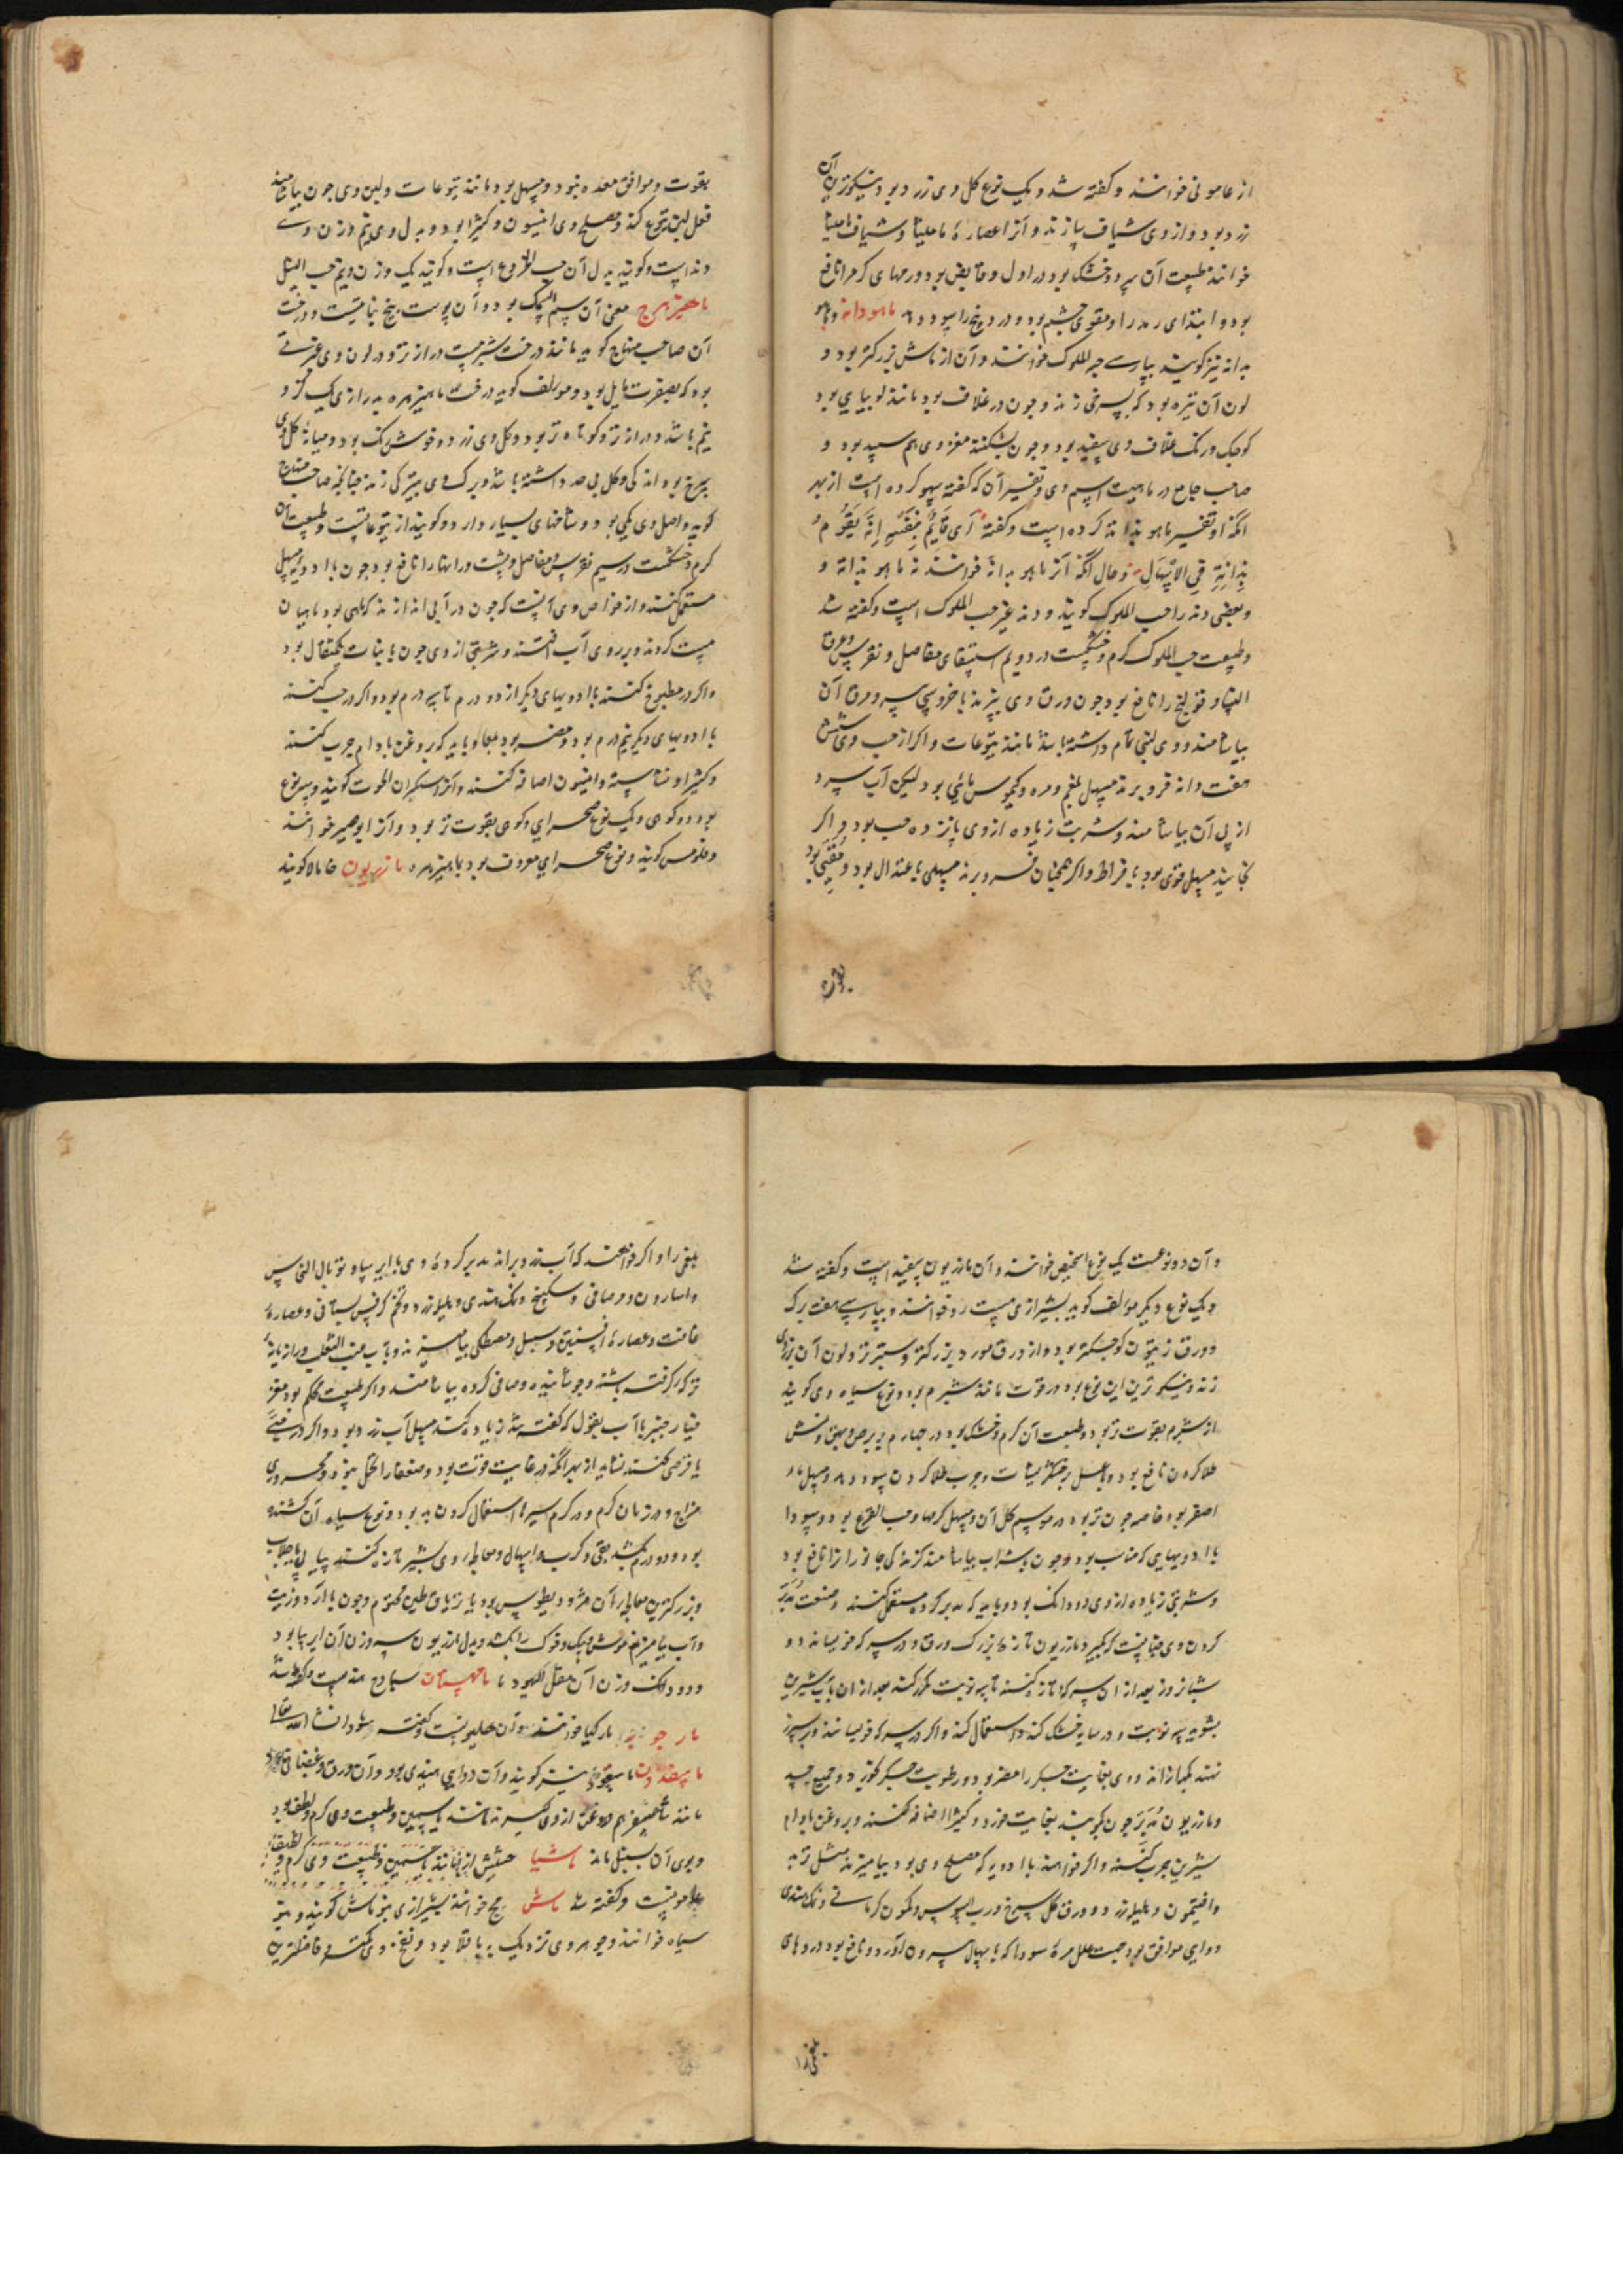 از عامونی خوانند و کفته شد و یک نوع کل وی زرد بود نیکوترین آن
زرد بود و از وی شیاف سازند و آنرا عصارهٔ مامیثا و شیاف مامیثا
خوانند طبیعت آن سرد و خشک بود در اول و قابض بود ورمهای کرم را نافع
بود و ابتدای رمد را و مقوی چشم بود و درد پنج را سود دهد ماهودانه و ماهو
بدانه نیز کویند بپارسی حب الملوک خوانند و آن از ماش بزرکتر بود و
لون آن تیره بود که بسرخی زند و چون در غلاف بود مانند لوبیای بود
کوچک و رنک غلاف وی سفید بود و چون بشکنند مغز وی هم سپید بود و
صاحب جامع در ماهیت اسم وی و تفسیر آن که کفته سهو کرده است از بهر
آنکه او تفسیر ماهو بذانه کرده است و کفته أی قَایِمٌ بِنَفْسِهِ إنَّه یَقُومُ
بِذَاتِهِ فِی الاِسْهَالِ و حال آنکه آنرا ماهو بدانه خوانند نه ماهو بذاته و
و بعضی دند را حب الملوک کویند و دند غیر حب الملوک است و کفته شد
و طبیعت حب الملوک کرم و خشکست در دویم استسقا و مفاصل و نقرس و عرق
النسا و قولنج را نافع بود چون ورق وی بپزند با خروسی پیر و مرق آن
بیاشامند و وی لبنی تمام داشته باشد مانند یتوعات و اکر از حب وی شش
هفت دانه فرو برند مسهل بلغم و مره و کیموس مائی بود لیکن آب سرد
از پی آن بیاشامند و شربت زیاده از وی پانزده حب بود و اکر
بخایند مسهل قوی بود بافراط و اکر همچنان فرو برند مسهلی باعتدال بود و مُقَیّی بود
بقوت
بقوت و موافق معده نبود و مسهل بود مانند یتوعات و لبن وی چون بیاشامند
فعل لبن یتوع کند و مصلح وی انیسون و کتیرا بود و بدل وی نیم وزن وی
دند است و کویند بدل آن حب الخروع است و کویند یک وزن و نیم حب النیل
ماهیزهرج معنی آن سم السمک بود و آن پوست بیخ نباتیست و درخت
آن صاحب منهاج کوید مانند درخت شبرمست دراز تر و در لون وی غبرتی
بود که بصفرت مایل بود و مولف کوید درخت ماهیزهره بدرازی یک کز و
نیم باشد و درازتر و کوتاه تر بود و کل وی زرد و خوش رنک بود و میانهٔ کل وی
سرخ بود اندکی و کل بی حد داشته باشد و برک وی بتیرکی زند چنانکه صاحب منهاج
کوید و اصل وی یکی بود و شاخهای بسیار دارد و کویند از یتوعاتست و طبیعت آن
کرم و خشکست در سیم نقرس و مفاصل و پشت و رانها را نافع بود چون با ادویه مسهل
مستعمل کنند و از خواص وی آنست که چون در آبی اندازند که ماهی بود ماهیان
مست کردند و بر روی آب افتند و شربتی از وی چون با نبات یکمثقال بود
و اکر در مطبوخ کنند با ادویهای دیکر از دو درم تا سه درم بود و اکر در حب کنند
با ادویهای دیکر نیم درم بود و مضر بود بمعا و باید که بروغن بادام چرب کنند
و کتیرا و نشاسته و انیسون اضافه کنند و آنرا سیکران الحوت کویند و سه نوع
بود دو کوهی و یک نوع صحرایی و کوهی بقوت تر بود و آنرا بوصیر خوانند
و فلومس کویند و نوع صحرایی معروف بود بماهیزهره مازریون خامالا کویند
و آن دو نوعست یک نوع اشخیص خوانند و آن مازریون سفید است و کفته شد
و یک نوع دیکر مولف کوید بشیرازی مست رو خوانند و بپارسی هفت برک
و ورق زیتون کوچکتر بود و از ورق مورد بزرکتر و ستبرتر و لون آن بزردی
زند و نیکوترین این نوع بود در قوت مانند شبرم بود و نوع سیاه وی کویند
از شبرم بقوت تر بود و طبیعت آن کرم و خشک بود در چهارم و بر برص و بهق و نمش
طلا کردن نافع بود و با عسل بر خشکریشات و جرب طلا کردن سود دهد و مسهل ماء
اصفر بود خاصه چون تر بود در موسم کل آن و مسهل کرمها و حب القرع بود و سودا
با ادویهایی که مناسب بود و چون با شراب بیاشامند کزندکی جانوران را نافع بود
و شربتی زیاده از وی دو دانک بود و باید که مدبر کرده مستعمل کنند و صنعت مُدَبَّر
کردن وی چنانست که بکیرند مازریون تازه بزرک ورق و در سرکه خویسانند دو
شبانروز بعد از آن سرکه تازه کنند تا سه نوبت مکرر کنند بعد از آن بآب شیرین
بشویند سه نوبت و در سایه خشک کند و استعمال کند و اکر در سرکه خویسانند و بر سپرز
نهند بکدازاند و وی بغایت جکر را مضر بود و رطوبت جکر کوزد و جمیع جسد
و مازریون مُدَبَّر چون بکوبند بغایت خرد و کتیرا اضافه کنند و بروغن بادام
شیرین چرب کنند و اکر خواهند با ادویه که مصلح وی بود بیامیزند مثل تربد
و افتیمون و هلیله زرد و ورق کل سرخ و رب السوس و کمون کرمانی و نمک هندی
دوایی موافق بود جهت علل مرهٔ سودا که باسهال بیرون آورد و نافع بود درد های
بلغمی را
بلغمی را و اکر خواهند که آب زرد براند مدبر کردهٔ وی با ایرسا و توبال النحاس
و اسارون و مر صافی و سکبینج و نمک هندی و هلیله زرد و تخم کرفس بستانی و عصارهٔ
غافت و عصارهٔ افسنتین و سنبل و مصطکی بیامیزند و بآب عنب الثعلب و رازیانه
تر که کرفته باشند و جوشانیده و صافی کرده بیاشامند و اکر طبیعت محکم بود مغز
خیار چنبر با آب بقول که کفته شد زیاده کنند مسهل آب زرد بود و اکر در حبی
یا قرصی کنند نشاید از بهر آنکه در غایت قوت بود و ضعفا را تحمل نبود و محروری
مزاج و در زمان کرم و در کرم سیر استعمال کردن بد بود و نوع سیاه آن کشنده
بود و دو درم بکشد بقی و کرب و اسهال و معالجهٔ وی بشیر تازه کنند پیاپی یا جلاب
و بزرکترین معالجهٔ آن مثرودیطوس بود یا تریاق طین مختوم و چون با آرد و زیت
و آب بیامیزند موش و سک و خوک را بکشد و بدل مازریون سه وزن آن ایرسا بود
و دو دانک وزن آن مقل الیهود ماهیستان سادج هندیست و کفته شد
مار جوبه مار کیا خوانند و آن هلیونست و کفته شود انشاء الله تعالی
ماسفندن ماسفود نیز کویند و آن دوایی هندی بود و آن ورق و غضبان بود
مانند شاهسفرم و روغن از وی کیرند مانند یاسمین و طبیعت وی کرم و لطیف بود
و بوی آن بسنبل ماند ماشیا حشیش از مانند یاسمین و طبیعت وی کرم و لطیف
عاموتیست و کفته شد ماش مج خوانند بشیرازی بنو ماش کویند و بنو
سیاه خوانند و جوهر وی نزدیک بباقلا بود و نفخ وی کمتر و فاضلترین